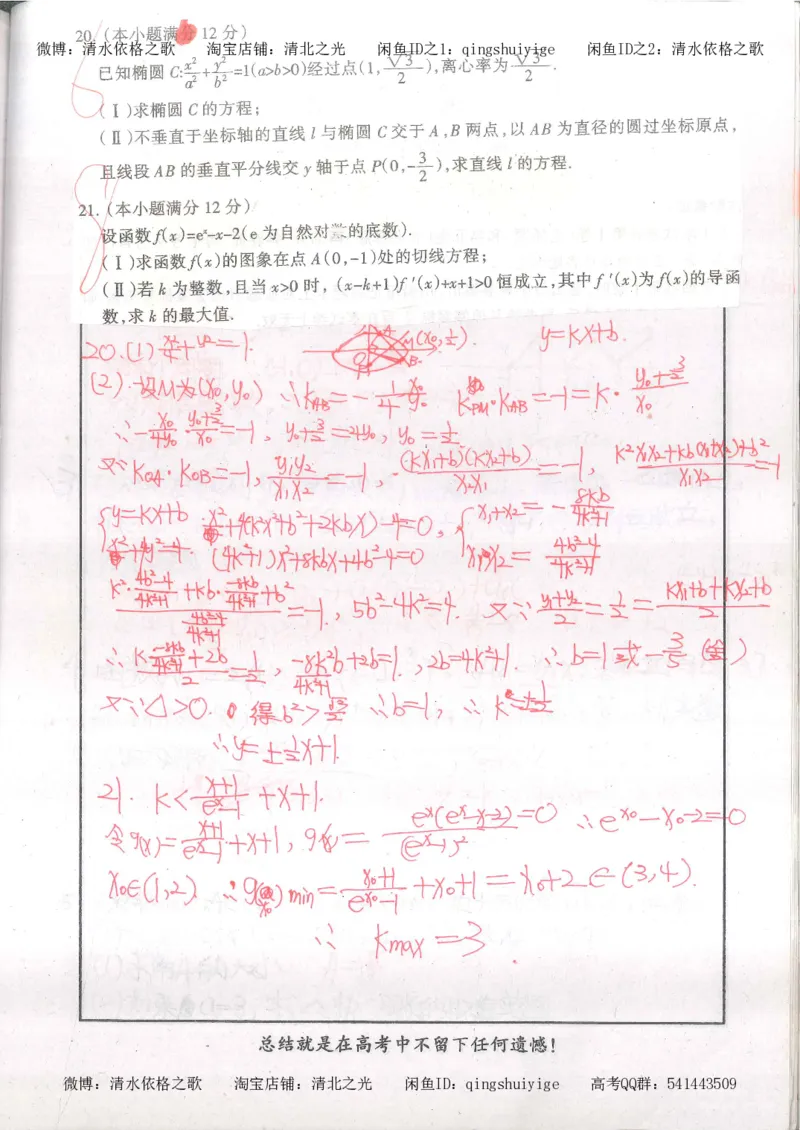 20.(本小题满分 12 分)
微博：清水依格之歌 淘宝店铺：清北之光 闲鱼ID之1：qingshuiyige 闲鱼ID之2：清水依格之歌
已知椭圆 C:x²/a²+y²/b²=1(a>b>0)经过点(1,√3/2),离心率为√3/2.
(Ⅰ)求椭圆 C 的方程;
(Ⅱ)不垂直于坐标轴的直线 l 与椭圆 C 交于 A,B 两点,以 AB 为直径的圆过坐标原点,
且线段 AB 的垂直平分线交 y 轴于点 P(0,-3/2),求直线 l 的方程.
21.(本小题满分 12 分)
设函数 f(x)=eˣ-x-2(e 为自然对数的底数).
(Ⅰ)求函数 f(x)的图象在点 A(0,-1)处的切线方程;
(Ⅱ)若 k 为整数,且当 x>0 时,(x-k+1)f′(x)+x+1>0 恒成立,其中 f′(x)为 f(x)的导函
数,求 k 的最大值.
20.(1) x²/4+y²=1. A M(x₀,½). B y=kx+b.
(2).设M为(x₀,y₀) ∵k_AB=-¼ x₀/y₀ k_PM·k_AB=-1=k·(y₀+3/2)/x₀
∴-x₀/4y₀·(y₀+3/2)/x₀=-1,y₀+3/2=4y₀,y₀=½
又∵k_OA·k_OB=-1,y₁y₂/x₁x₂=-1 (kx₁+b)(kx₂+b)/x₂x₁=-1,(k²x₁x₂+kb(x₁+x₂)+b²)/x₁x₂=-1
{y=kx+b x²+4(k²x²+b²+2kbx)-4=0,{x₁+x₂=-8kb/(4k²+1)
x²+4y²=4. (4k²+1)x²+8kbx+4b²-4=0 x₁x₂=(4b²-4)/(4k²+1)
(k²·(4b²-4)/(4k²+1)+kb·(-8kb)/(4k²+1)+b²)/((4b²-4)/(4k²+1))=-1,5b²-4k²=4. 又∵(y₁+y₂)/2=½=(kx₁+b+kx₂+b)/2
∴(k·(-8kb)/(4k²+1)+2b)/2=½,-8k²b/(4k²+1)+2b=1,2b=4k²+1.∴b=1或-3/5(舍)
又∵△>0. 得b²>√3/2 ∴b=1,∴k=±½
∴y=±½x+1.
21. k<(x+1)/(eˣ-1)+x+1.
令g(x)=(x+1)/(eˣ-1)+x+1,g′(x)=eˣ(eˣ-x-2)/(eˣ-1)²=0 ∴e^x₀-x₀-2=0
x₀∈(1,2). ∴g(x₀)min=(x₀+1)/(e^x₀-1)+x₀+1=x₀+2∈(3,4).
∴kmax=3.
总结就是在高考中不留下任何遗憾!
微博：清水依格之歌 淘宝店铺：清北之光 闲鱼ID：qingshuiyige 高考QQ群：541443509